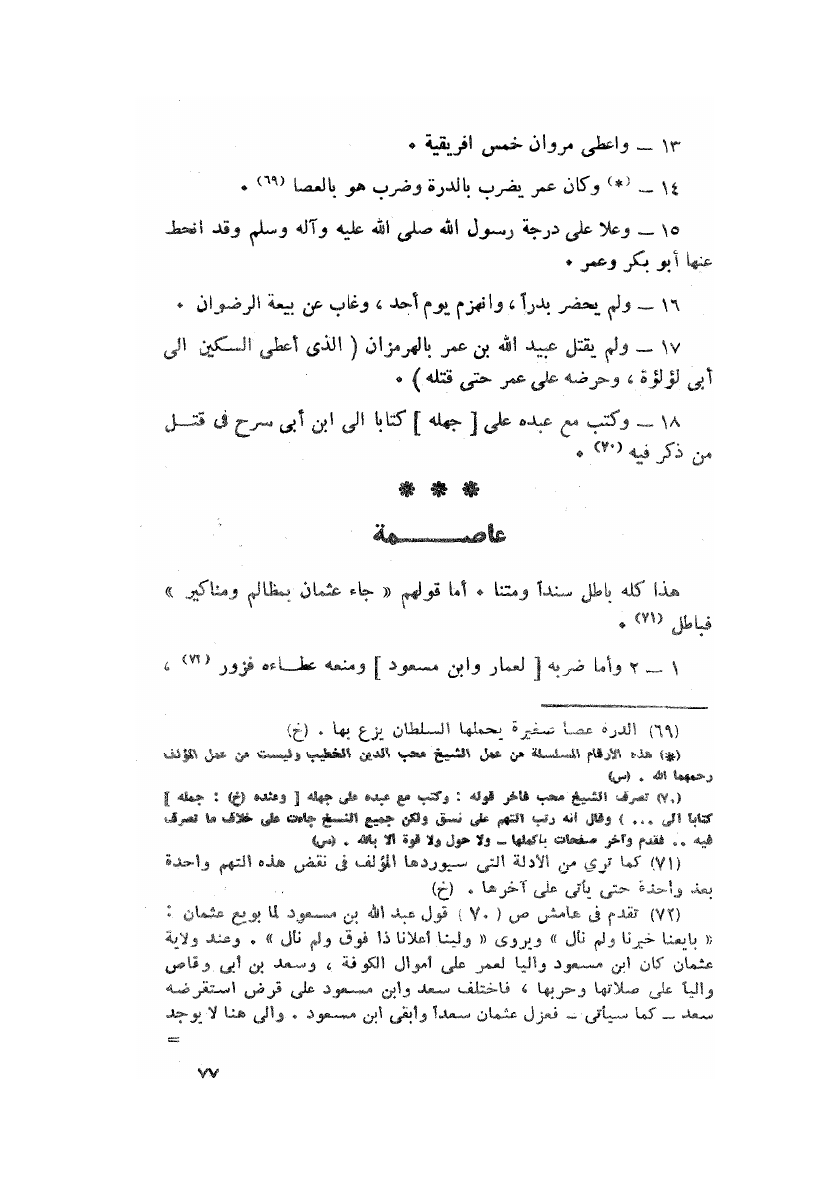 ١٣ ــ واعطى مروان خمس افريقية ٠
١٤ ــ (*) وكان عمر يضرب بالدرة وضرب هو بالعصا (٦٩) ٠
١٥ ــ وعلا على درجة رسول الله صلى الله عليه وآله وسلم وقد انحط
عنها أبو بكر وعمر ٠
١٦ ــ ولم يحضر بدراً ، وانهزم يوم أحد ، وغاب عن بيعة الرضوان ٠
١٧ ــ ولم يقتل عبيد الله بن عمر بالهرمزان ( الذى أعطى السكين الى
أبى لؤلؤة ، وحرضه على عمر حتى قتله ) ٠
١٨ ــ وكتب مع عبده على [ جهله ] كتابا الى ابن أبى سرح فى قتــل
من ذكر فيه (٧٠) ٠
* * *
عاصــــــمة
هذا كله باطل سنداً ومتنا ٠ أما قولهم « جاء عثمان بمظالم ومناكير »
فباطل (٧١) ٠
١ ــ ٢ وأما ضربه [ لعمار وابن مسعود ] ومنعه عطــاءه فزور (٧٢) ،
(٦٩) الدرة عصا صغيرة يحملها السلطان يزع بها ٠ (خ)
(*) هذه الأرقام المسلسلة من عمل الشيخ محب الدين الخطيب وليست من عمل المؤلف
رحمهما الله ٠ (س)
(٧٠) تصرف الشيخ محب فأخر قوله : وكتب مع عبده على جهله [ وعنده (خ) : جمله ]
كتاباً الى ... ) وقال أنه رتب التهم على نسق ولكن جميع النسخ جاءت على خلاف ما تصرف
فيه .. فقدم وآخر صفحات بأكملها ــ ولا حول ولا قوة ألا بالله ٠ (س)
(٧١) كما ترى من الأدلة التى سيوردها المؤلف فى نقض هذه التهم واحدة
بعد واحدة حتى يأتى على آخرها ٠ (خ)
(٧٢) تقدم فى هامش ص (٧٠) قول عبد الله بن مسعود لما بويع عثمان :
« بايعنا خيرنا ولم نأل » ويروى « ولينا أعلانا ذا فوق ولم نأل » ٠ وعند ولاية
عثمان كان ابن مسعود واليا لعمر على أموال الكوفة ، وسعد بن أبى وقاص
والياً على صلاتها وحربها ، فاختلف سعد وابن مسعود على قرض استقرضه
سعد ــ كما سيأتى ــ فعزل عثمان سعداً وأبقى ابن مسعود ٠ والى هنا لا يوجد
=
٧٧